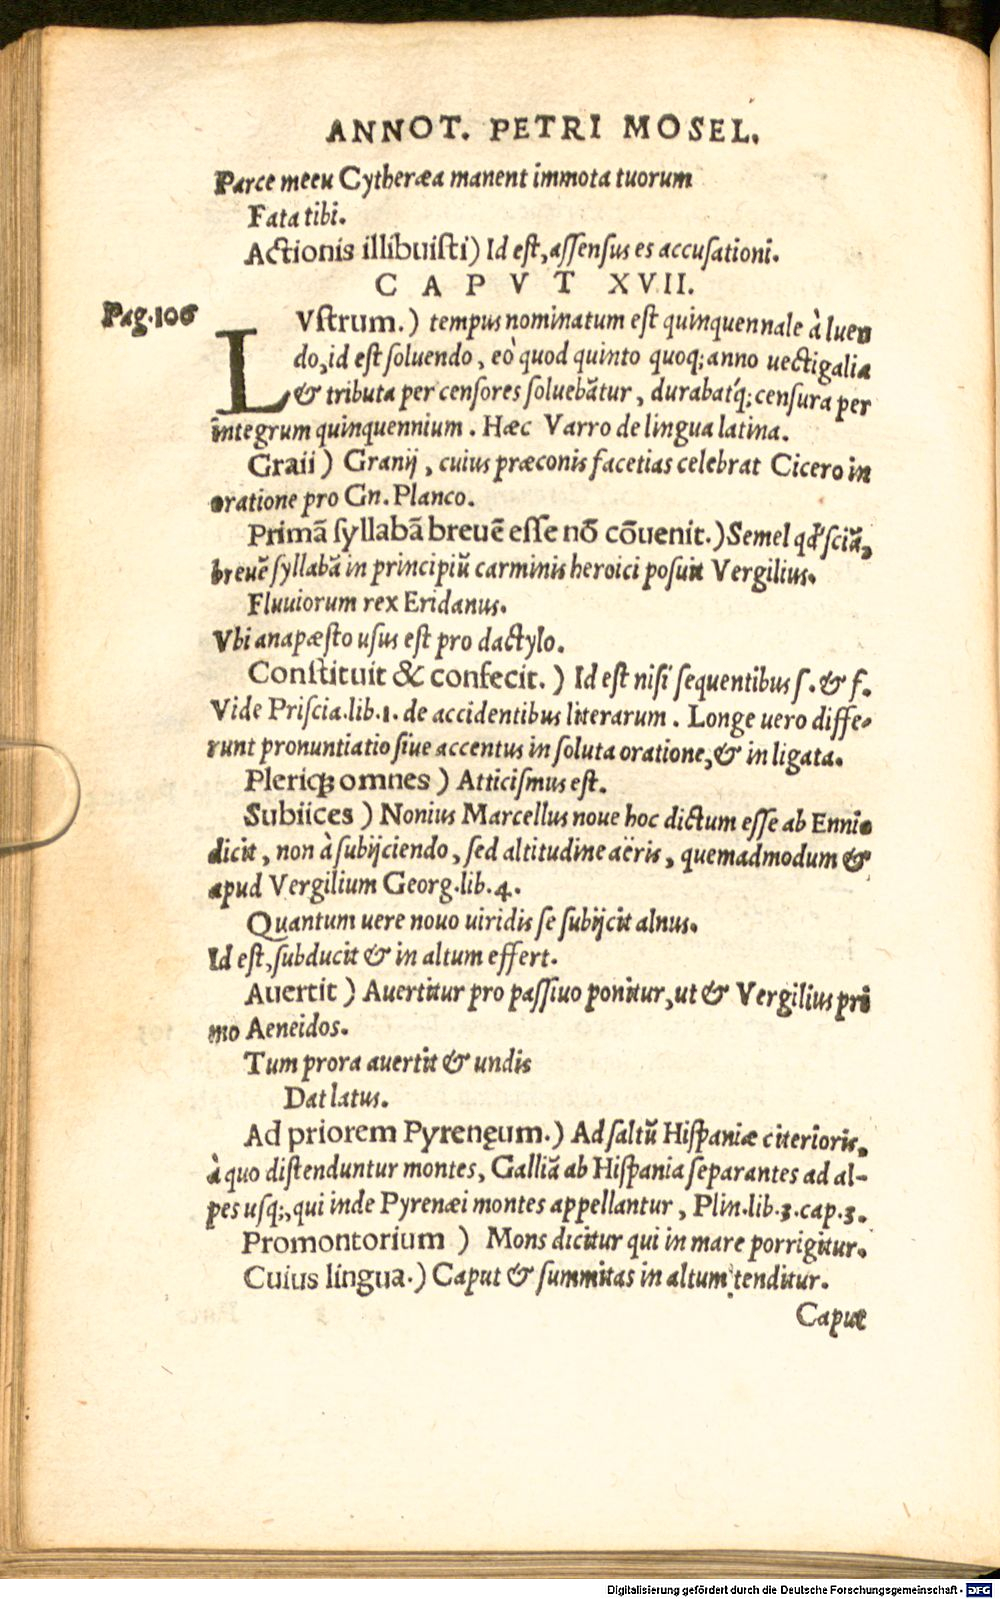 ANNOT. PETRI MOSEL.
Parce meeu Cytheræa manent immota tuorum
Fata tibi.
Actionis illibuisti) Id eſt, aſſenſus es accuſationi.
CAPVT XVII.
Pag.106
LVſtrum.) tempus nominatum eſt quinquennale à luen
do, id eſt ſoluendo, eò quod quinto quoq; anno uectigalia
& tributa per cenſores ſoluebãtur, durabat'q; cenſura per
integrum quinquennium. Hæc Varro de lingua latina.
Graii) Granij, cuius præconis facetias celebrat Cicero in
oratione pro Gn. Planco.
Primã ſyllabã breuẽ eſſe nõ cõuenit.) Semel qď ſciã,
breuẽ ſyllabã in principiũ carminis heroici poſuit Vergilius.
Fluuiorum rex Eridanus.
Vbi anapæſto uſus eſt pro dactylo.
Conſtituit & confecit.) Id eſt niſi ſequentibus ſ. & f.
Vide Priſcia. lib. 1. de accidentibus literarum. Longe uero diffe-
runt pronuntiatio ſiue accentus in ſoluta oratione, & in ligata.
Pleriq; omnes) Atticiſmus eſt.
Subiices) Nonius Marcellus noue hoc dictum eſſe ab Ennio
dicit, non à ſubijciendo, ſed altitudine aëris, quemadmodum &
apud Vergilium Georg. lib. 4.
Quantum uere nouo uiridis ſe ſubijcit alnus.
Id eſt, ſubducit & in altum effert.
Auertit) Auertitur pro paſſiuo ponitur, ut & Vergilius pri
mo Aeneidos.
Tum prora auertit & undis
Dat latus.
Ad priorem Pyrenęum.) Ad ſaltũ Hiſpaniæ citerioris,
à quo diſtenduntur montes, Galliã ab Hiſpania ſeparantes ad al-
pes uſq;, qui inde Pyrenæi montes appellantur, Plin. lib. 3. cap. 3.
Promontorium) Mons dicitur qui in mare porrigitur.
Cuius lingua.) Caput & ſummitas in altum tenditur.
Caput
Digitalisierung gefördert durch die Deutsche Forschungsgemeinschaft - DFG